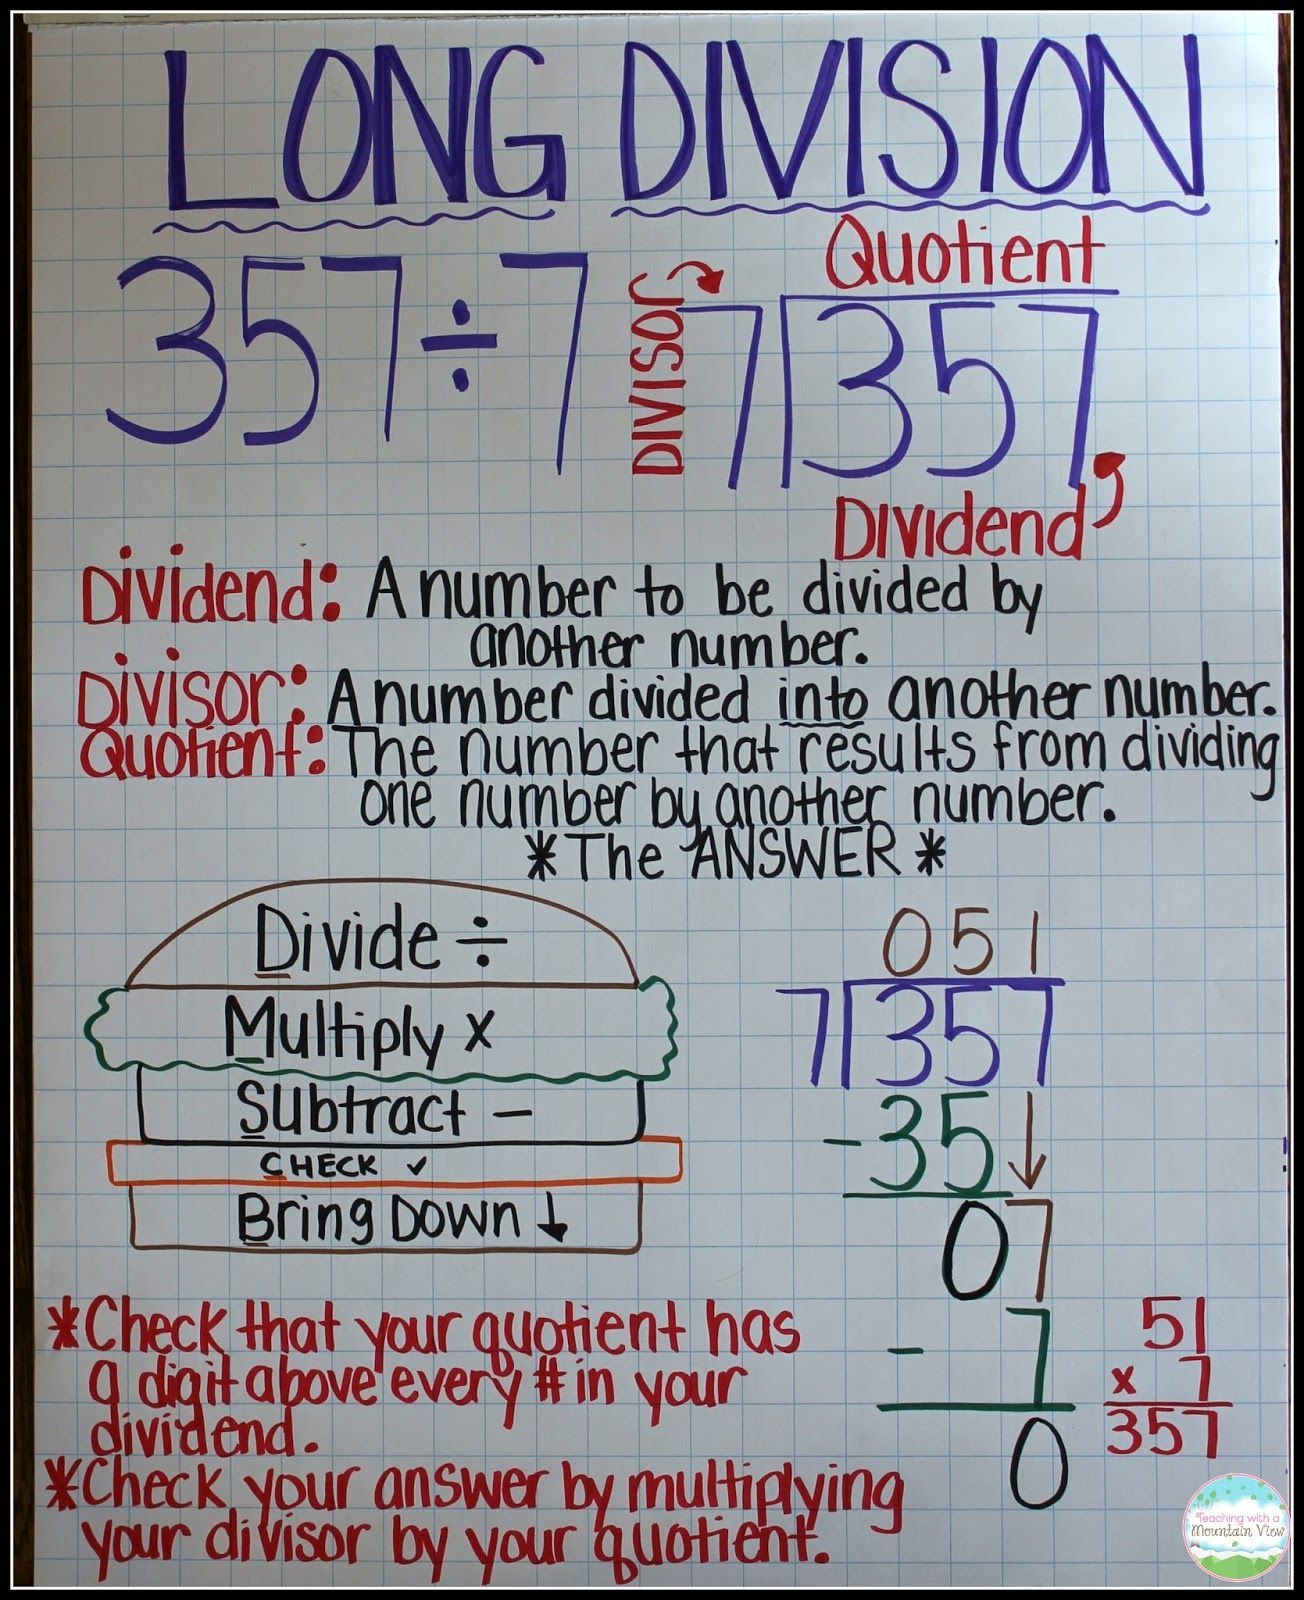 LONG DIVISION
357÷7
Quotient
DIVISOR
7 357
Dividend
Dividend: A number to be divided by
another number.
Divisor: A number divided into another number.
Quotient: The number that results from dividing
one number by another number.
*The ANSWER*
Divide ÷
Multiply x
Subtract –
CHECK ✓
Bring Down ↓
051
7 357
-35↓
07
- 7
0
51
x 7
357
*Check that your quotient has
a digit above every # in your
dividend.
*Check your answer by multiplying
your divisor by your quotient.
Teaching with a
Mountain View